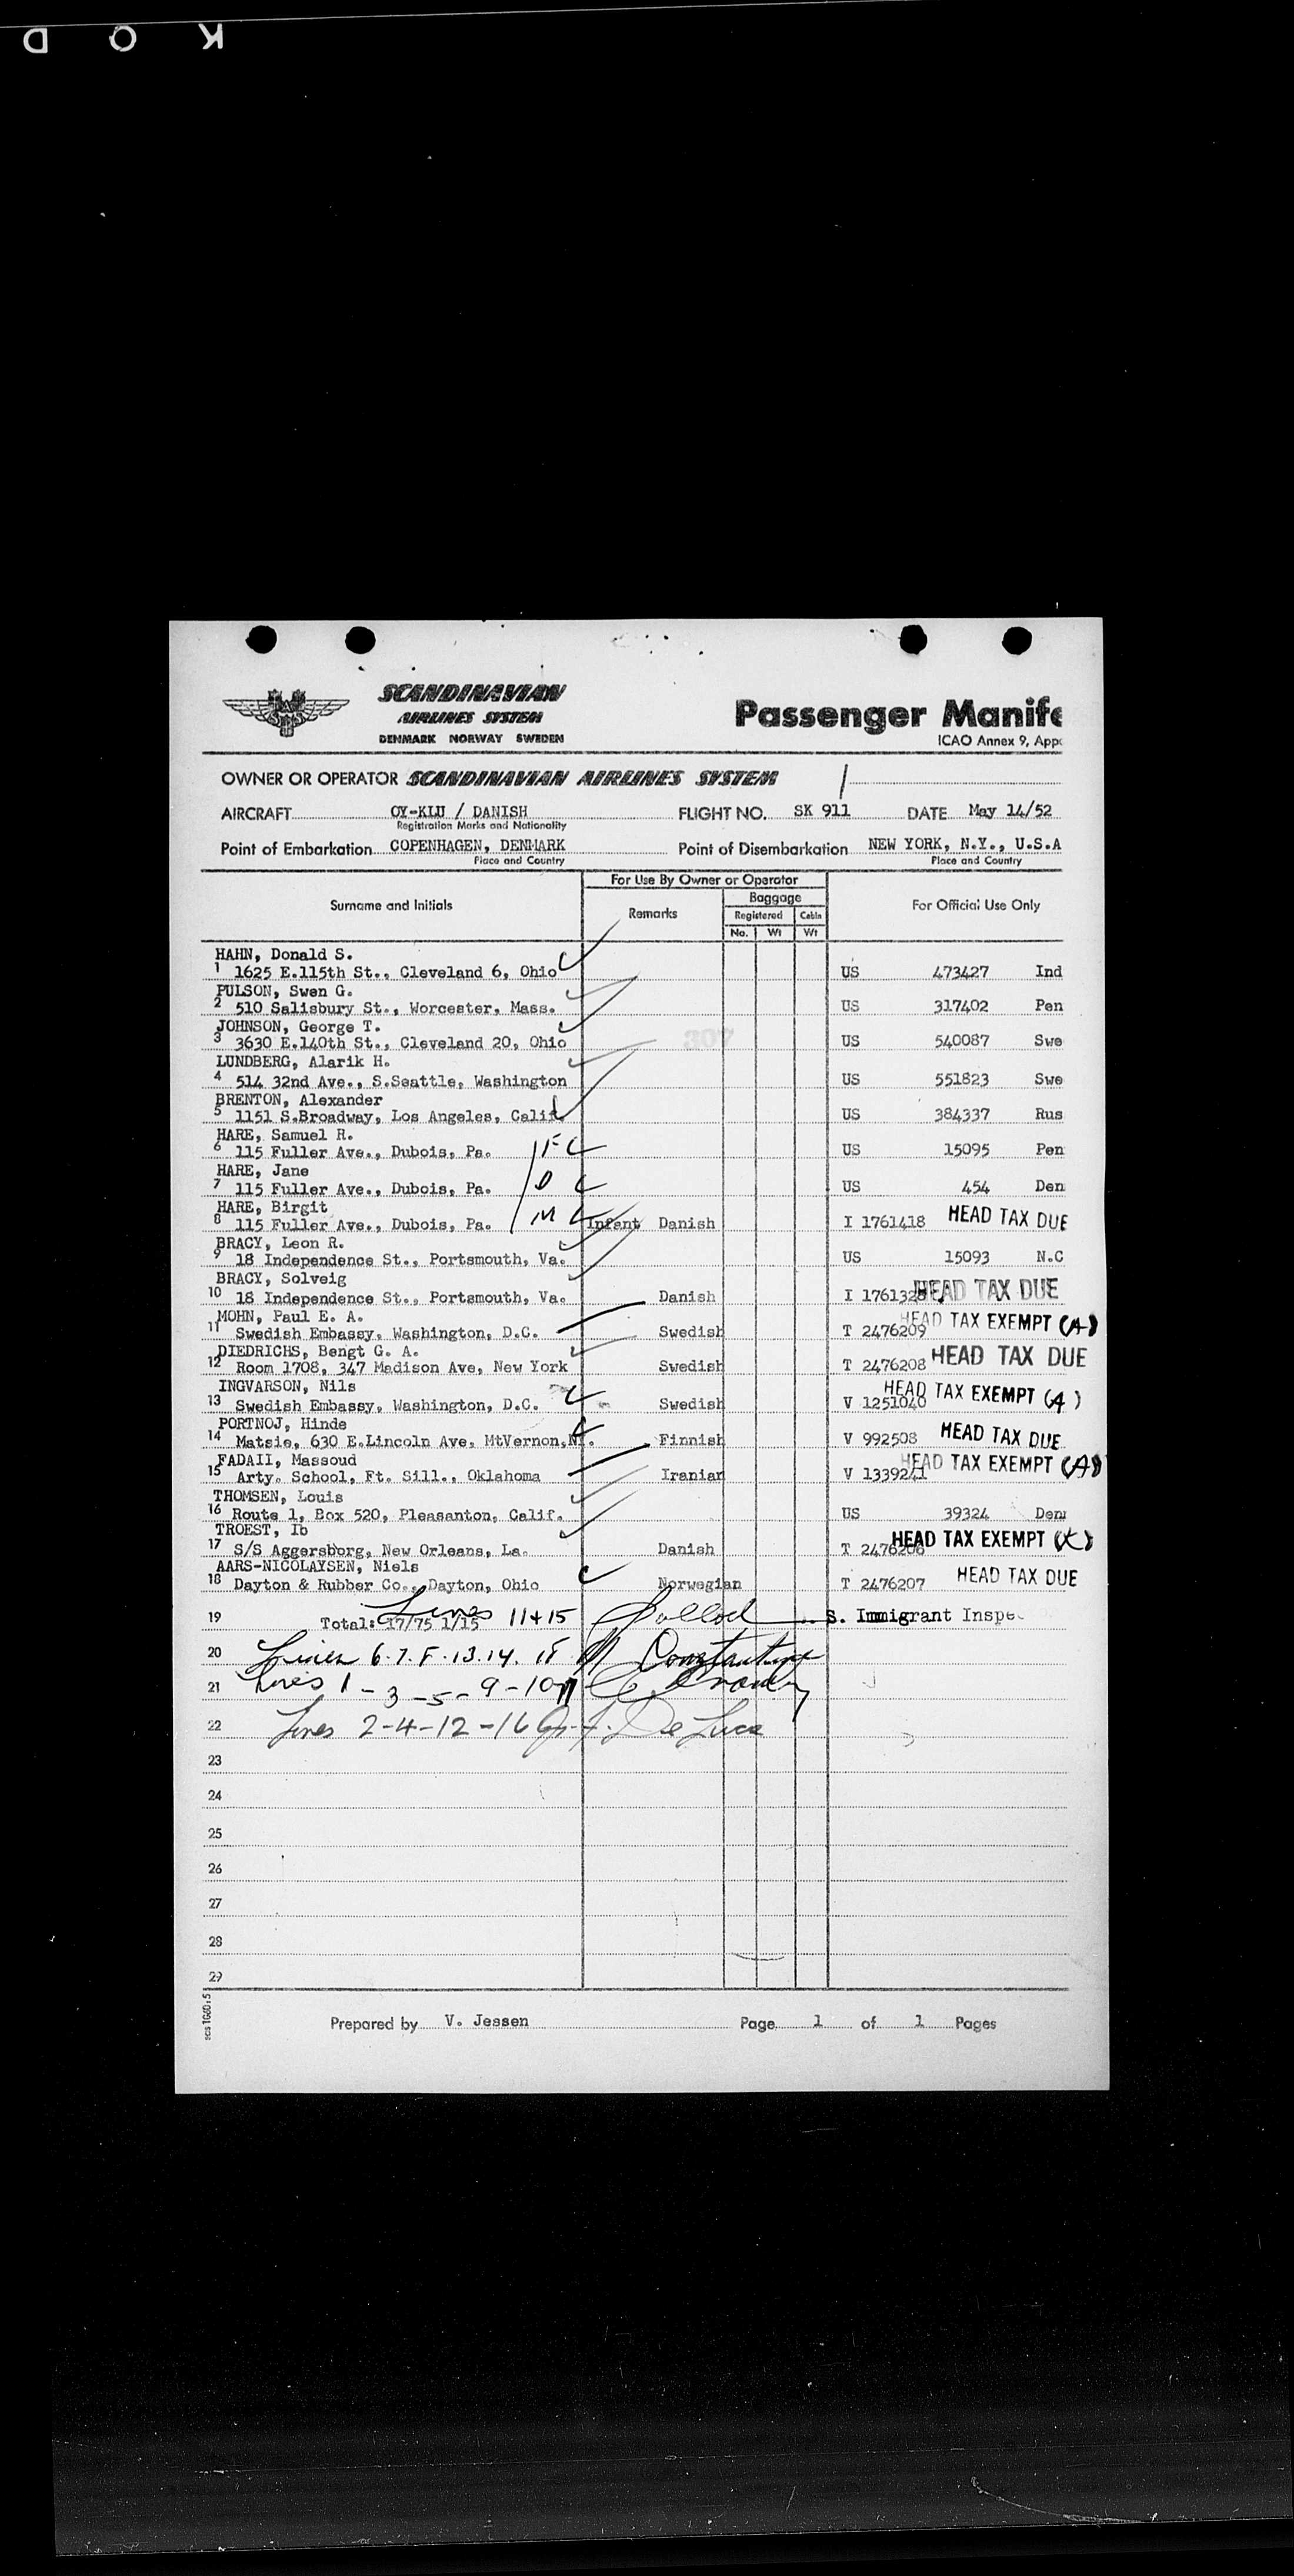 K O D
SCANDINAVIAN
AIRLINES SYSTEM
DENMARK NORWAY SWEDEN
SAS
Passenger Manife
ICAO Annex 9, App
OWNER OR OPERATOR SCANDINAVIAN AIRLINES SYSTEM
AIRCRAFT OY-KLU / DANISH FLIGHT NO. SK 911 DATE May 14/52
Registration Marks and Nationality
Point of Embarkation COPENHAGEN, DENMARK Point of Disembarkation NEW YORK, N.Y., U.S.A
Place and Country Place and Country
For Use By Owner or Operator
Surname and Initials Remarks Baggage For Official Use Only
Registered Cabin
No. Wt Wt
HAHN, Donald S.
1 1625 E.115th St., Cleveland 6, Ohio US 473427 Ind
PULSON, Swen G.
2 510 Salisbury St., Worcester, Mass. US 317402 Pen
JOHNSON, George T.
3 3630 E.140th St., Cleveland 20, Ohio US 540087 Swe
LUNDBERG, Alarik H.
4 514 32nd Ave., S.Seattle, Washington US 551823 Swe
BRENTON, Alexander
5 1151 S.Broadway, Los Angeles, Calif. US 384337 Rus
HARE, Samuel R.
6 115 Fuller Ave., Dubois, Pa. F US 15095 Pen
HARE, Jane
7 115 Fuller Ave., Dubois, Pa. US 454 Den
HARE, Birgit
8 115 Fuller Ave., Dubois, Pa. M Infant Danish I 1761418 HEAD TAX DUE
BRACY, Leon R.
9 18 Independence St., Portsmouth, Va. US 15093 N.C
BRACY, Solveig
10 18 Independence St., Portsmouth, Va. Danish I 1761328 HEAD TAX DUE
MOHN, Paul E. A.
11 Swedish Embassy, Washington, D.C. Swedish T 2476209 HEAD TAX EXEMPT (A)
DIEDRICHS, Bengt G. A.
12 Room 1708, 347 Madison Ave, New York Swedish T 2476208 HEAD TAX DUE
INGVARSON, Nils
13 Swedish Embassy, Washington, D.C. Swedish V 1251040 HEAD TAX EXEMPT (A)
PORTNOJ, Hinde
14 Matsie, 630 E.Lincoln Ave, MtVernon,NY. Finnish V 992508 HEAD TAX DUE
FADAII, Massoud
15 Arty. School, Ft. Sill., Oklahoma Iranian V 1339241 HEAD TAX EXEMPT (A)
THOMSEN, Louis
16 Route 1, Box 520, Pleasanton, Calif. US 39324 Den
TROEST, Ib
17 S/S Aggersborg, New Orleans, La. Danish T 2476206 HEAD TAX EXEMPT
AARS-NICOLAYSEN, Niels
18 Dayton & Rubber Co., Dayton, Ohio Norwegian T 2476207 HEAD TAX DUE
19 Total: 17/75 1/15 Lines 11+15 S. Immigrant Inspe
20 Lines 6.7.8.13.14.18 M Constantine
21 Lines 1-3-5-9-10
22 Lines 2-4-12-16 De Luca
23
24
25
26
27
28
29
Prepared by V. Jessen Page 1 of 1 Pages